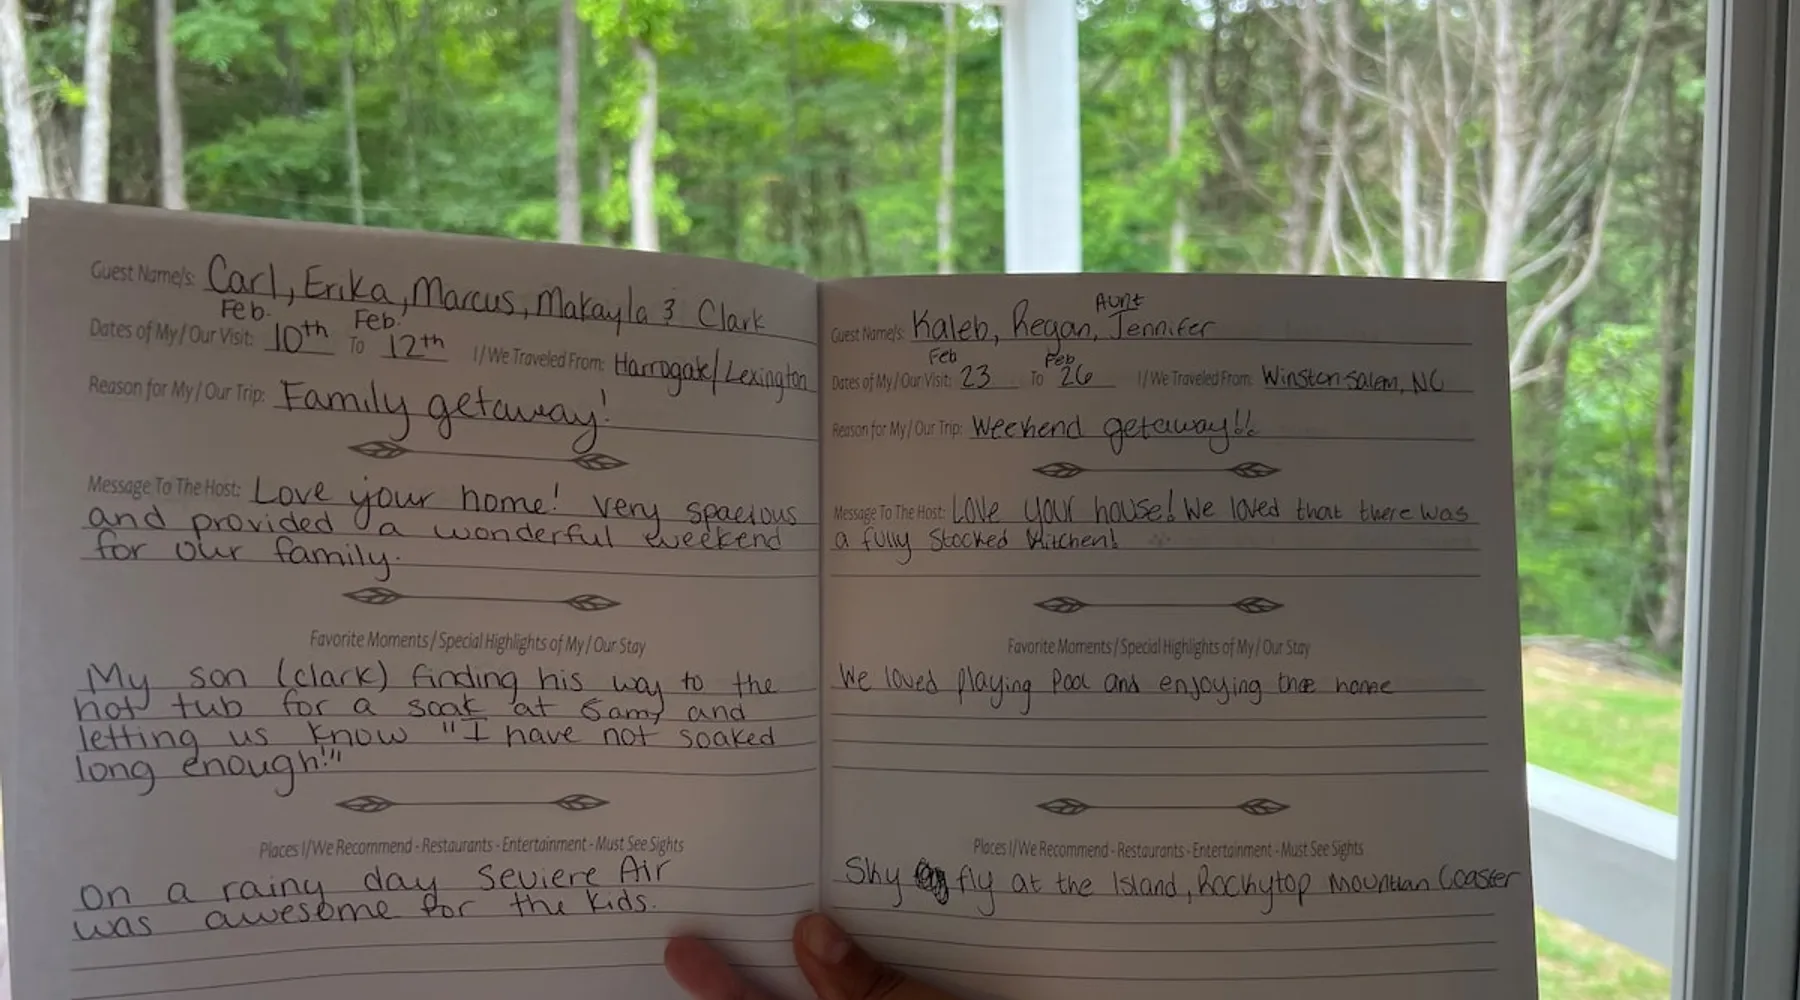 Guest Name/s: Carl, Erika, Marcus, Makayla & Clark
Feb. Feb.
Dates of My/Our Visit: 10th To 12th I/We Traveled From: Harrogate/Lexington
Reason for My/Our Trip: Family getaway!
Message To The Host: Love your home! Very spacious
and provided a wonderful weekend
for our family.
Favorite Moments/Special Highlights of My/Our Stay
My son (Clark) finding his way to the
hot tub for a soak at 6am, and
letting us know "I have not soaked
long enough!"
Places I/We Recommend - Restaurants - Entertainment - Must See Sights
On a rainy day Seviere Air
was awesome for the kids.
Aunt
Guest Name/s: Kaleb, Regan, Jennifer
Feb Feb
Dates of My/Our Visit: 23 To 26 I/We Traveled From: Winston Salem, NC
Reason for My/Our Trip: Weekend getaway!!
Message To The Host: Love your house! We loved that there was
a fully stocked kitchen!
Favorite Moments/Special Highlights of My/Our Stay
We loved playing pool and enjoying the home
Places I/We Recommend - Restaurants - Entertainment - Must See Sights
Sky fly at the Island, Rockytop Mountian Coaster